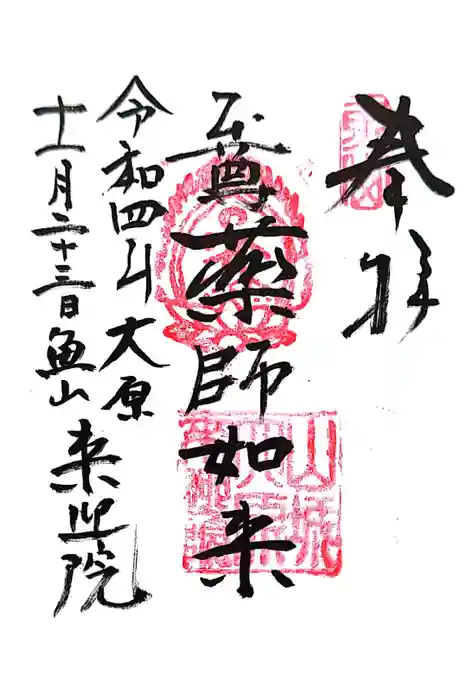 奉拝
至尊薬師如来
令和四年 大原
十一月二十三日 魚山 来迎院